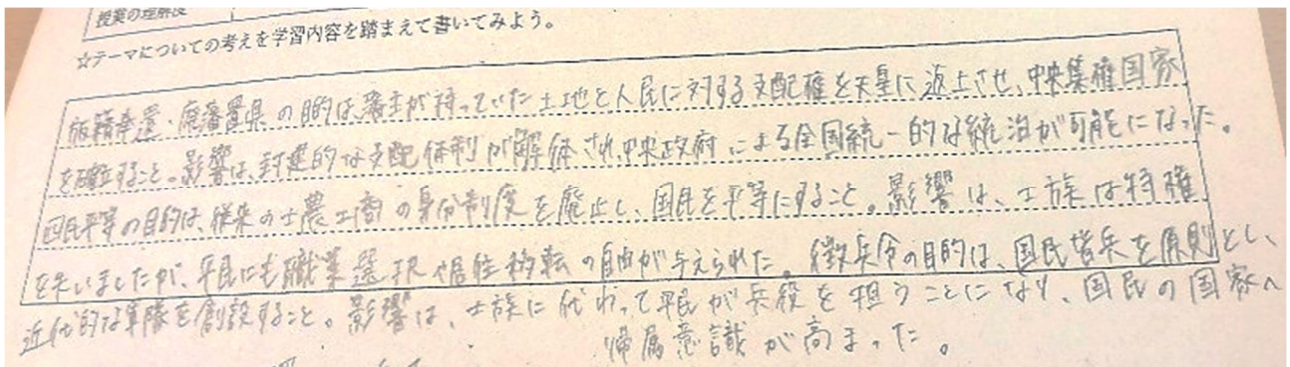 授業の理解度
☆テーマについての考えを学習内容を踏まえて書いてみよう。
版籍奉還・廃藩置県の目的は、藩主が持っていた土地と人民に対する支配権を天皇に返上させ、中央集権国家
を確立すること。影響は、封建的な支配体制が解体され、中央政府による全国統一的な統治が可能になった。
四民平等の目的は、従来の士農工商の身分制度を廃止し、国民を平等にすること。影響は、士族は特権
を失いましたが、平民にも職業選択や居住移転の自由が与えられた。徴兵令の目的は、国民皆兵を原則とし、
近代的な軍隊を創設すること。影響は、士族に代わって平民が兵役を担うことになり、国民の国家へ
帰属意識が高まった。